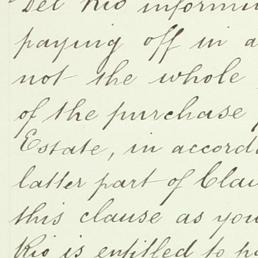 Del Rio informi
paying off in a
not the whole
of the purchase
Estate, in accord
latter part of Clau
this clause as you
Rio is entitled to pa